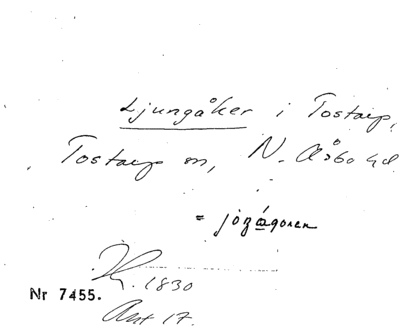 Ljungåker i Tostarp,
Tostarp sn, N. Åsbo hd
= jozågoren
1830
Nr 7455.
Akt 17.